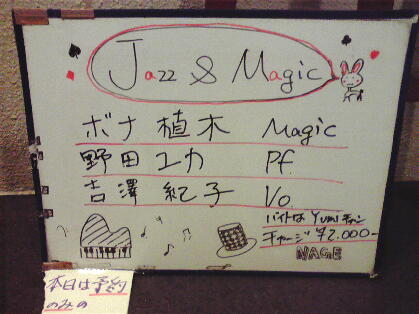 Jazz & Magic
ボナ植木 Magic
野田ユカ Pf.
吉澤紀子 Vo
バイトは Yumiチャン
チャージ ¥2,000-
NAGE
本日は予約
のみの